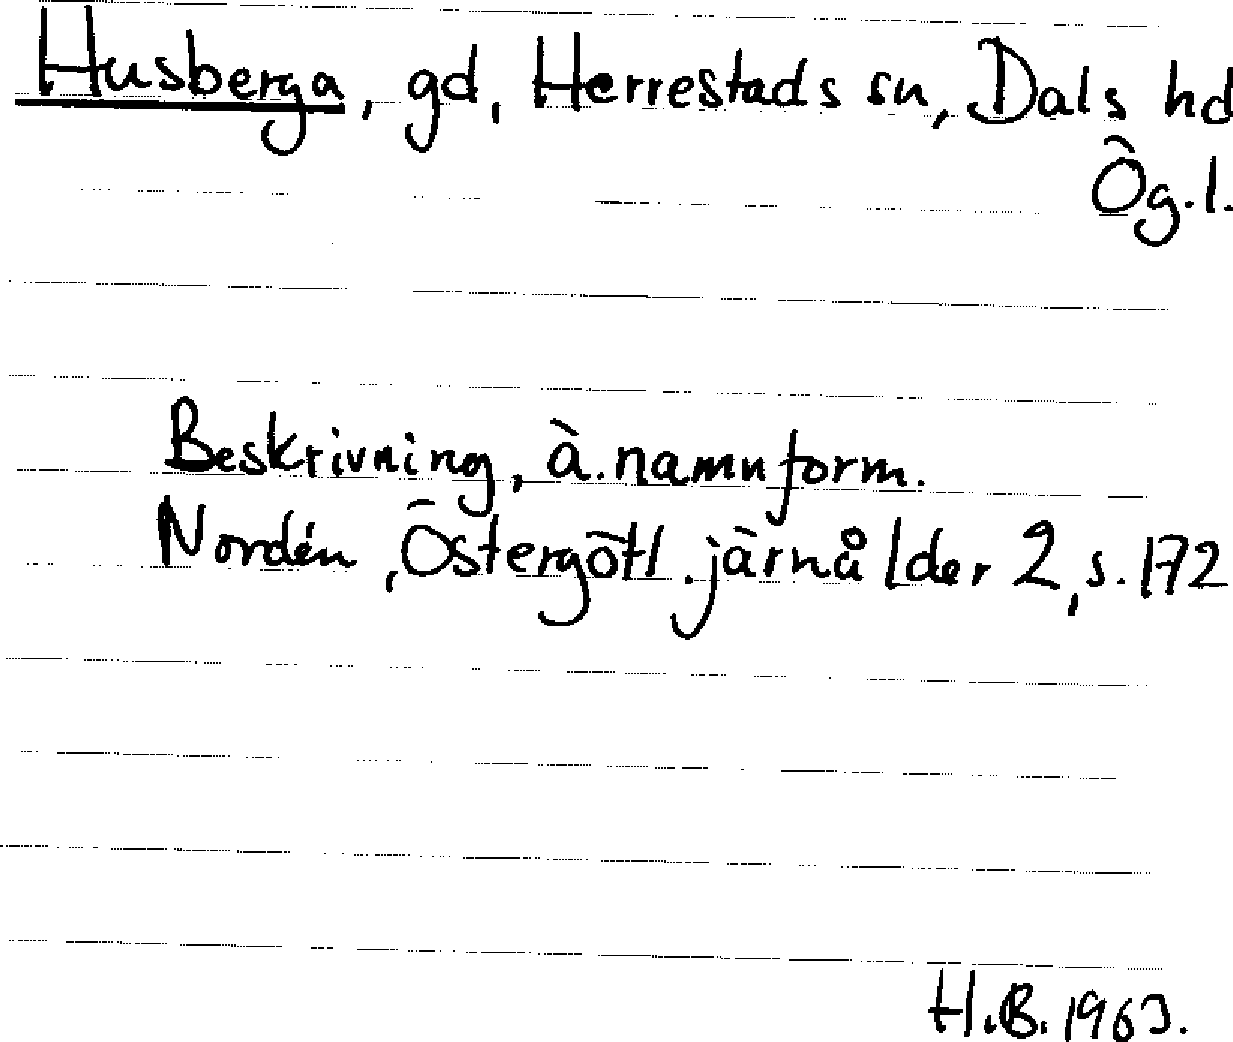 Husberga, gd, Herrestads sn, Dals hd
Ög.l.
Beskrivning, ä. namnform.
Nordén, Östergötl. järnålder 2, s. 172
H.B. 1963.